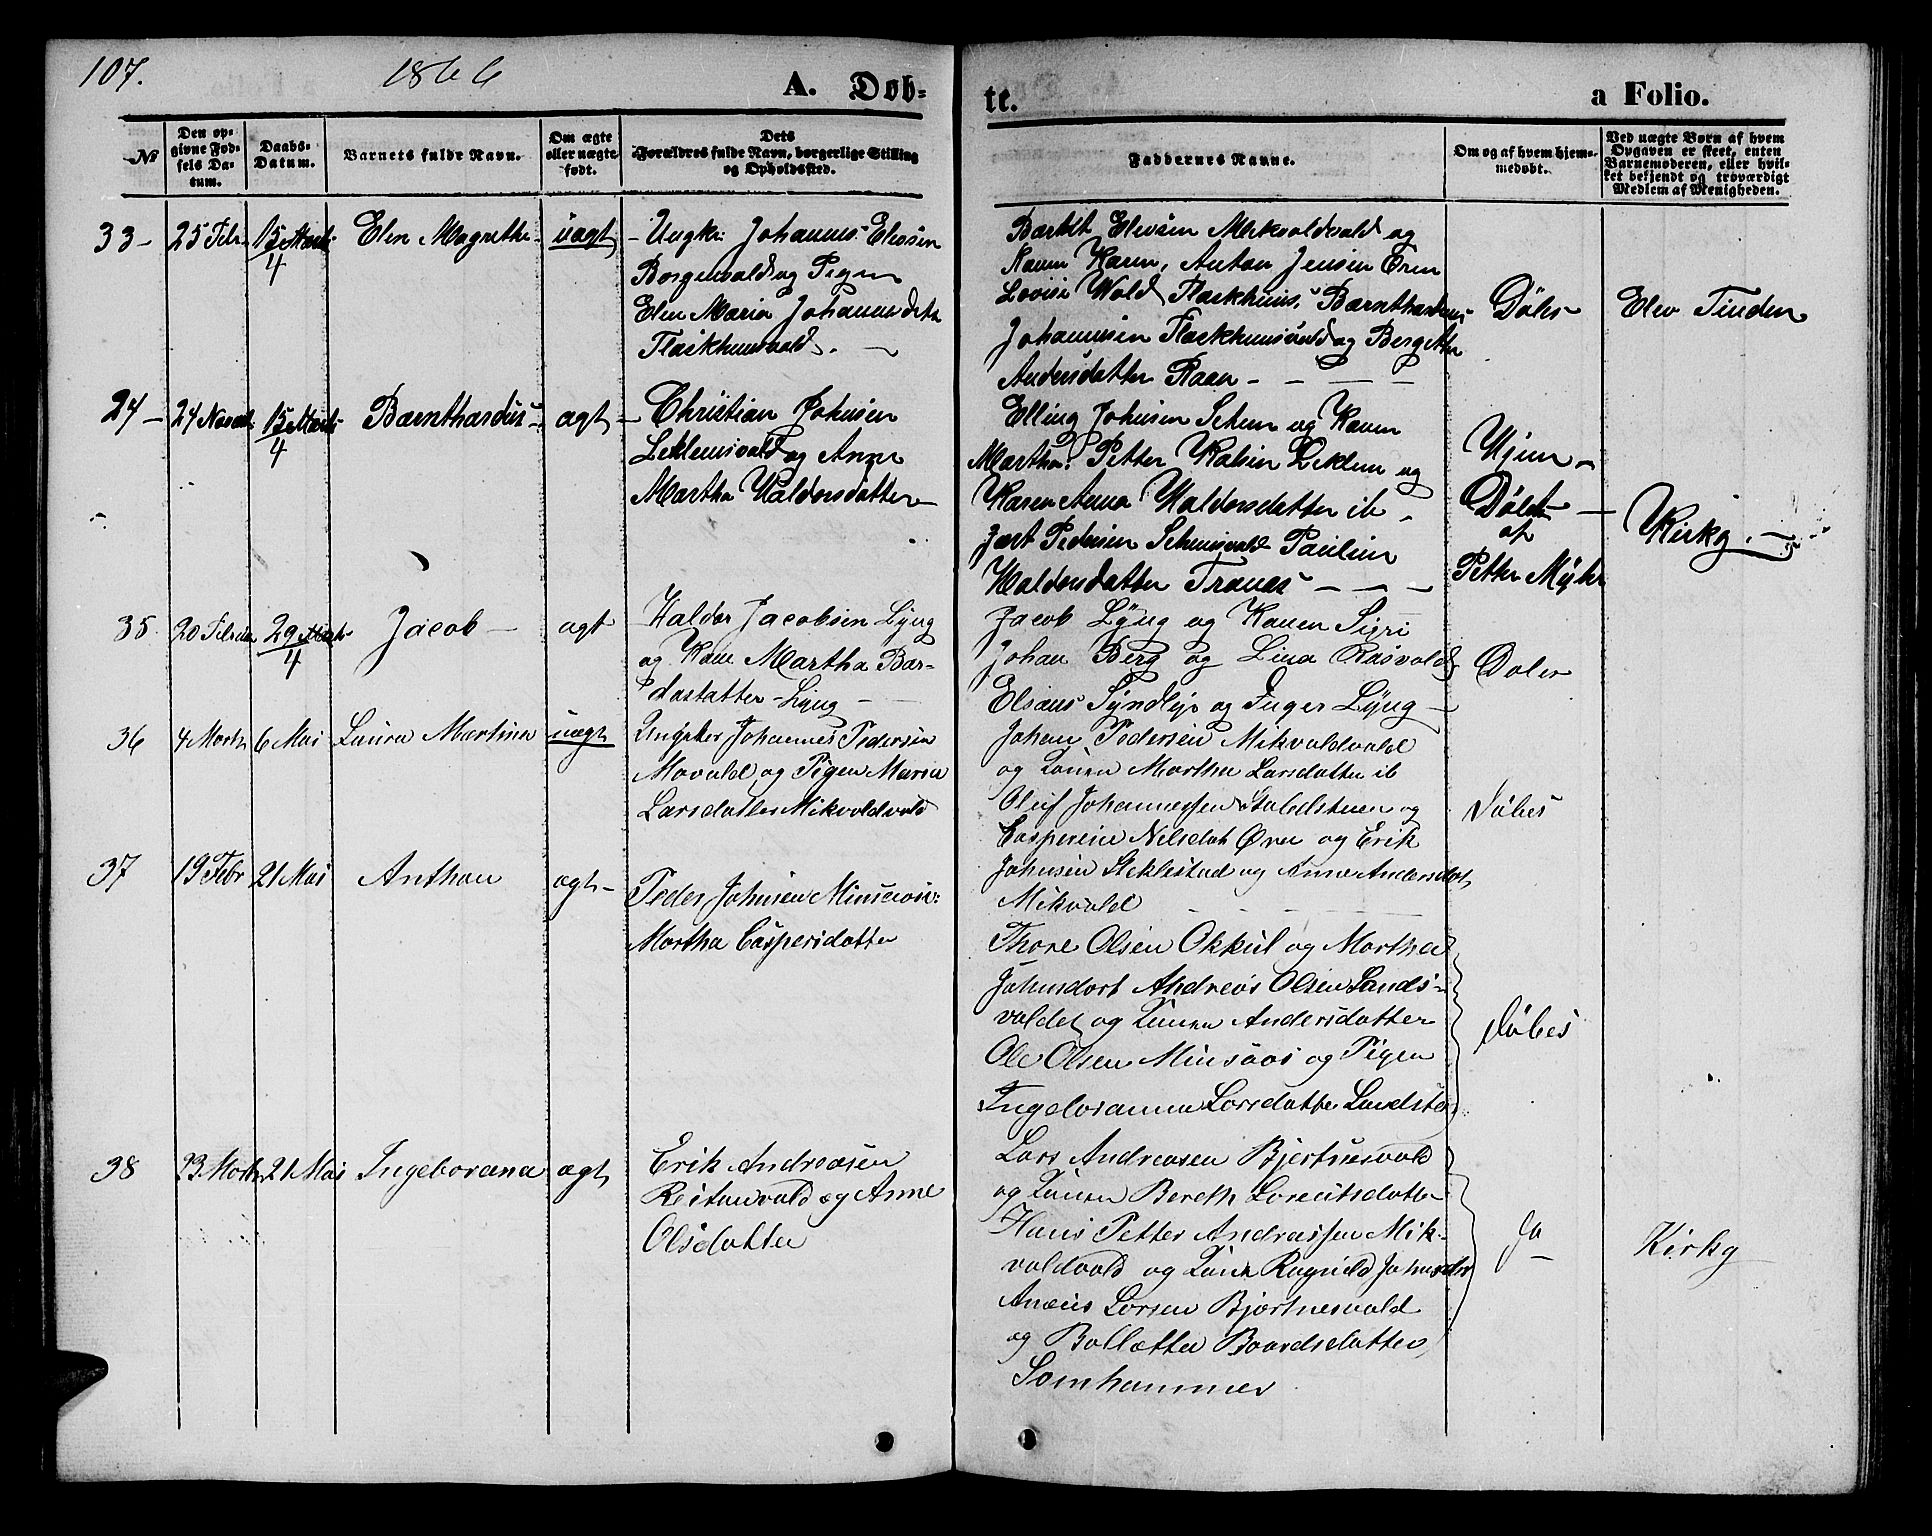 107.
1866
A. Døb-
te.
a Folio.
No
Den op-
givne Fød-
sels Da-
tum.
Daabs-
Datum.
Barnets fulde Navn.
Om ægte
eller uægte
født.
Dets
Forældres fulde Navn, borgerlige Stilling
og Opholdssted.
Faddernes Navne.
Om og af hvem hjem-
medøbt.
Ved uægte Børn af hvem
Opgaven er skeet, enten
Barnemoderen, eller hvil-
ket bekjendt og troværdigt
Medlem af Menigheden.
33-
25 Febr
15 Marts
4
Elen Magrethe
uægt
Ungkr: Johannis Elevsen
Borgenvald og Pigen
Elen Maria Johannesdtr
Flaskhusvald. -
Bærtel Elevsen Mikvoldvald og
Konen Karen, Anton Jensen Ören
Lovise Wold Flaskhuus, Bærnthardus
Johannisen Flaskhuusvald og Bergitte
Andersdatter Raen - - - -
Döbs
Elev Tinden
24-
24 Novemb
15 Marts
4
Bærnthardus
ægt
Christian Johnsen
Leklemsvald og Anne
Martha Haldorsdatter
Elling Johnsen Schem og Konen
Martha. Petter Kolsen Leklem og
Karen Anna Haldorsdatter ib
Jært Pedersen Schemsvald Pauline
Haldorsdatter Tranæs - - -
Hjem-
Döbt
af
Petter Myhr
Kirkg. -
35
20 Februar
29 Marts
4
Jacob -
ægt
Haldor Jacobsen Lÿng
og Kone Martha Bar-
dosdatter - Lÿng -
Jacob Lÿng og Konen Sigri
Johan Berg og Lina Rosvald
Elsaus Sÿndleje og Inger Lÿng -
Dølev
36
4 Marts
6 Mai
Laura Martina
uægt
Ungkr Johannes Pedersen
Movald og Pigen Maria
Larsdatter Mikvoldvald
Johan Pedersen Mikvoldvald
og Konen Martha Larsdatter ib
Oluf Johannessen Stubelstuen og
Casperine Nilsdat Øren og Erik
Johnsen Steklestad og Anne Andersdat
Mikvold
Döbes
37
19 Febr
21 Mai
Anthon
ægt-
Peder Johnsen Minsaas
Martha Caspersdatter
Thore Olsen Okkul og Martha
Johnsdort Andreas Olsen Sunds-
valdet og Konen Andersdatter
Ole Olsen Minsaas og Pigen
Ingeboranna Larsdatter Lundste
Döbes
38
23 Marts
21 Mai
Ingeborana
ægt
Erik Andreasen
Reitanvald og Anne
Olsdatter
Lars Andreasen Bjertnesvald
og Konen Bereth Lorentsdatter
Hans Petter Andreassen Mik-
voldvald og Konen Ragnild Johnsdtr
Anæus Larsen Bjartnesvald
og Bollætte Baardsdatter
Somhammer
Ja
-
Kirkg